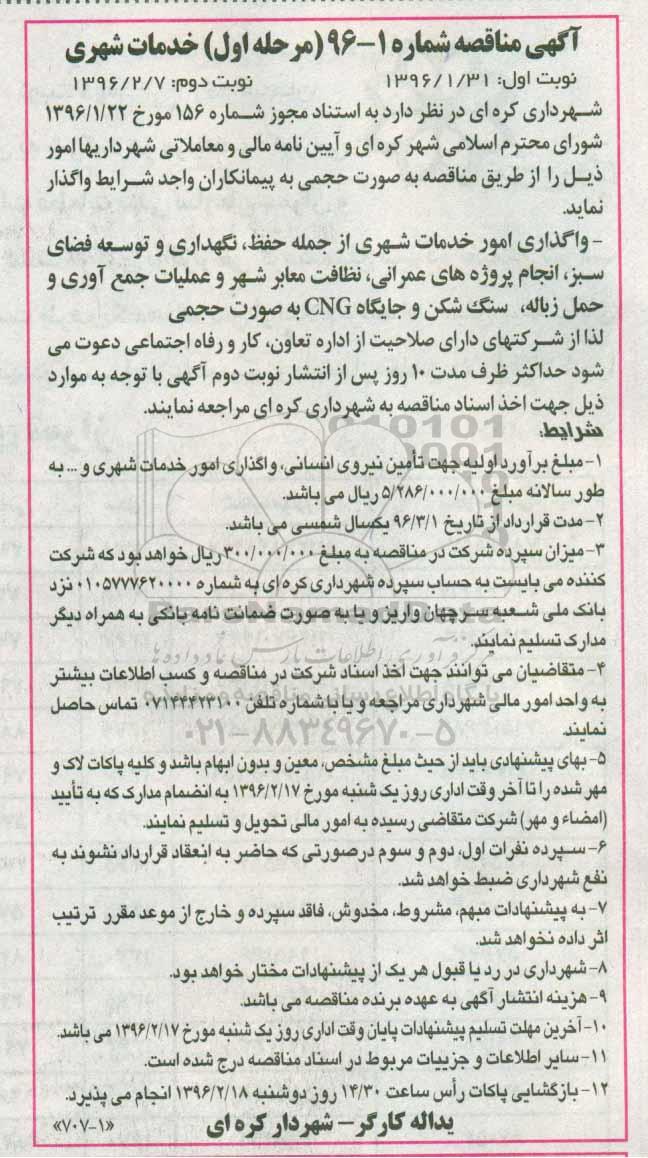 آگهی مناقصه شماره ۱-۹۶ (مرحله اول) خدمات شهری
نوبت اول: ۱۳۹۶/۱/۳۱ نوبت دوم: ۱۳۹۶/۲/۷
شهرداری کره ای در نظر دارد به استناد مجوز شماره ۱۵۶ مورخ ۱۳۹۶/۱/۲۲
شورای محترم اسلامی شهر کره ای و آیین نامه مالی و معاملاتی شهرداریها امور
ذیل را از طریق مناقصه به صورت حجمی به پیمانکاران واجد شرایط واگذار
نماید.
- واگذاری امور خدمات شهری از جمله حفظ، نگهداری و توسعه فضای
سبز، انجام پروژه های عمرانی، نظافت معابر شهر و عملیات جمع آوری و
حمل زباله، سنگ شکن و جایگاه CNG به صورت حجمی
لذا از شرکتهای دارای صلاحیت از اداره تعاون، کار و رفاه اجتماعی دعوت می
شود حداکثر ظرف مدت ۱۰ روز پس از انتشار نوبت دوم آگهی با توجه به موارد
ذیل جهت اخذ اسناد مناقصه به شهرداری کره ای مراجعه نمایند.
شرایط:
۱- مبلغ برآورد اولیه جهت تأمین نیروی انسانی، واگذاری امور خدمات شهری و ... به
طور سالانه مبلغ ۵/۲۸۶/۰۰۰/۰۰۰ ریال می باشد.
۲- مدت قرارداد از تاریخ ۹۶/۳/۱ یکسال شمسی می باشد.
۳- میزان سپرده شرکت در مناقصه به مبلغ ۳۰۰/۰۰۰/۰۰۰ ریال خواهد بود که شرکت
کننده می بایست به حساب سپرده شهرداری کره ای به شماره ۰۱۰۵۷۷۷۶۲۰۰۰۰ نزد
بانک ملی شعبه سرچهان واریز و یا به صورت ضمانت نامه بانکی به همراه دیگر
مدارک تسلیم نمایند.
۴- متقاضیان می توانند جهت اخذ اسناد شرکت در مناقصه و کسب اطلاعات بیشتر
به واحد امور مالی شهرداری مراجعه و یا با شماره تلفن ۰۷۱۴۴۴۲۳۱۰۰ تماس حاصل
نمایند.
۰۲۱-۸۸۳۴۹۶۷۰-۵
۵- بهای پیشنهادی باید از حیث مبلغ مشخص، معین و بدون ابهام باشد و کلیه پاکات لاک و
مهر شده را تا آخر وقت اداری روز یک شنبه مورخ ۱۳۹۶/۲/۱۷ به انضمام مدارک که به تأیید
(امضاء و مهر) شرکت متقاضی رسیده به امور مالی تحویل و تسلیم نمایند.
۶- سپرده نفرات اول، دوم و سوم درصورتی که حاضر به انعقاد قرارداد نشوند به
نفع شهرداری ضبط خواهد شد.
۷- به پیشنهادات مبهم، مشروط، مخدوش، فاقد سپرده و خارج از موعد مقرر ترتیب
اثر داده نخواهد شد.
۸- شهرداری در رد یا قبول هر یک از پیشنهادات مختار خواهد بود.
۹- هزینه انتشار آگهی به عهده برنده مناقصه می باشد.
۱۰- آخرین مهلت تسلیم پیشنهادات پایان وقت اداری روز یک شنبه مورخ ۱۳۹۶/۲/۱۷ می باشد.
۱۱- سایر اطلاعات و جزییات مربوط در اسناد مناقصه درج شده است.
۱۲- بازگشایی پاکات رأس ساعت ۱۴/۳۰ روز دوشنبه ۱۳۹۶/۲/۱۸ انجام می پذیرد.
یداله کارگر- شهردار کره ای «۷۰۷-۱»